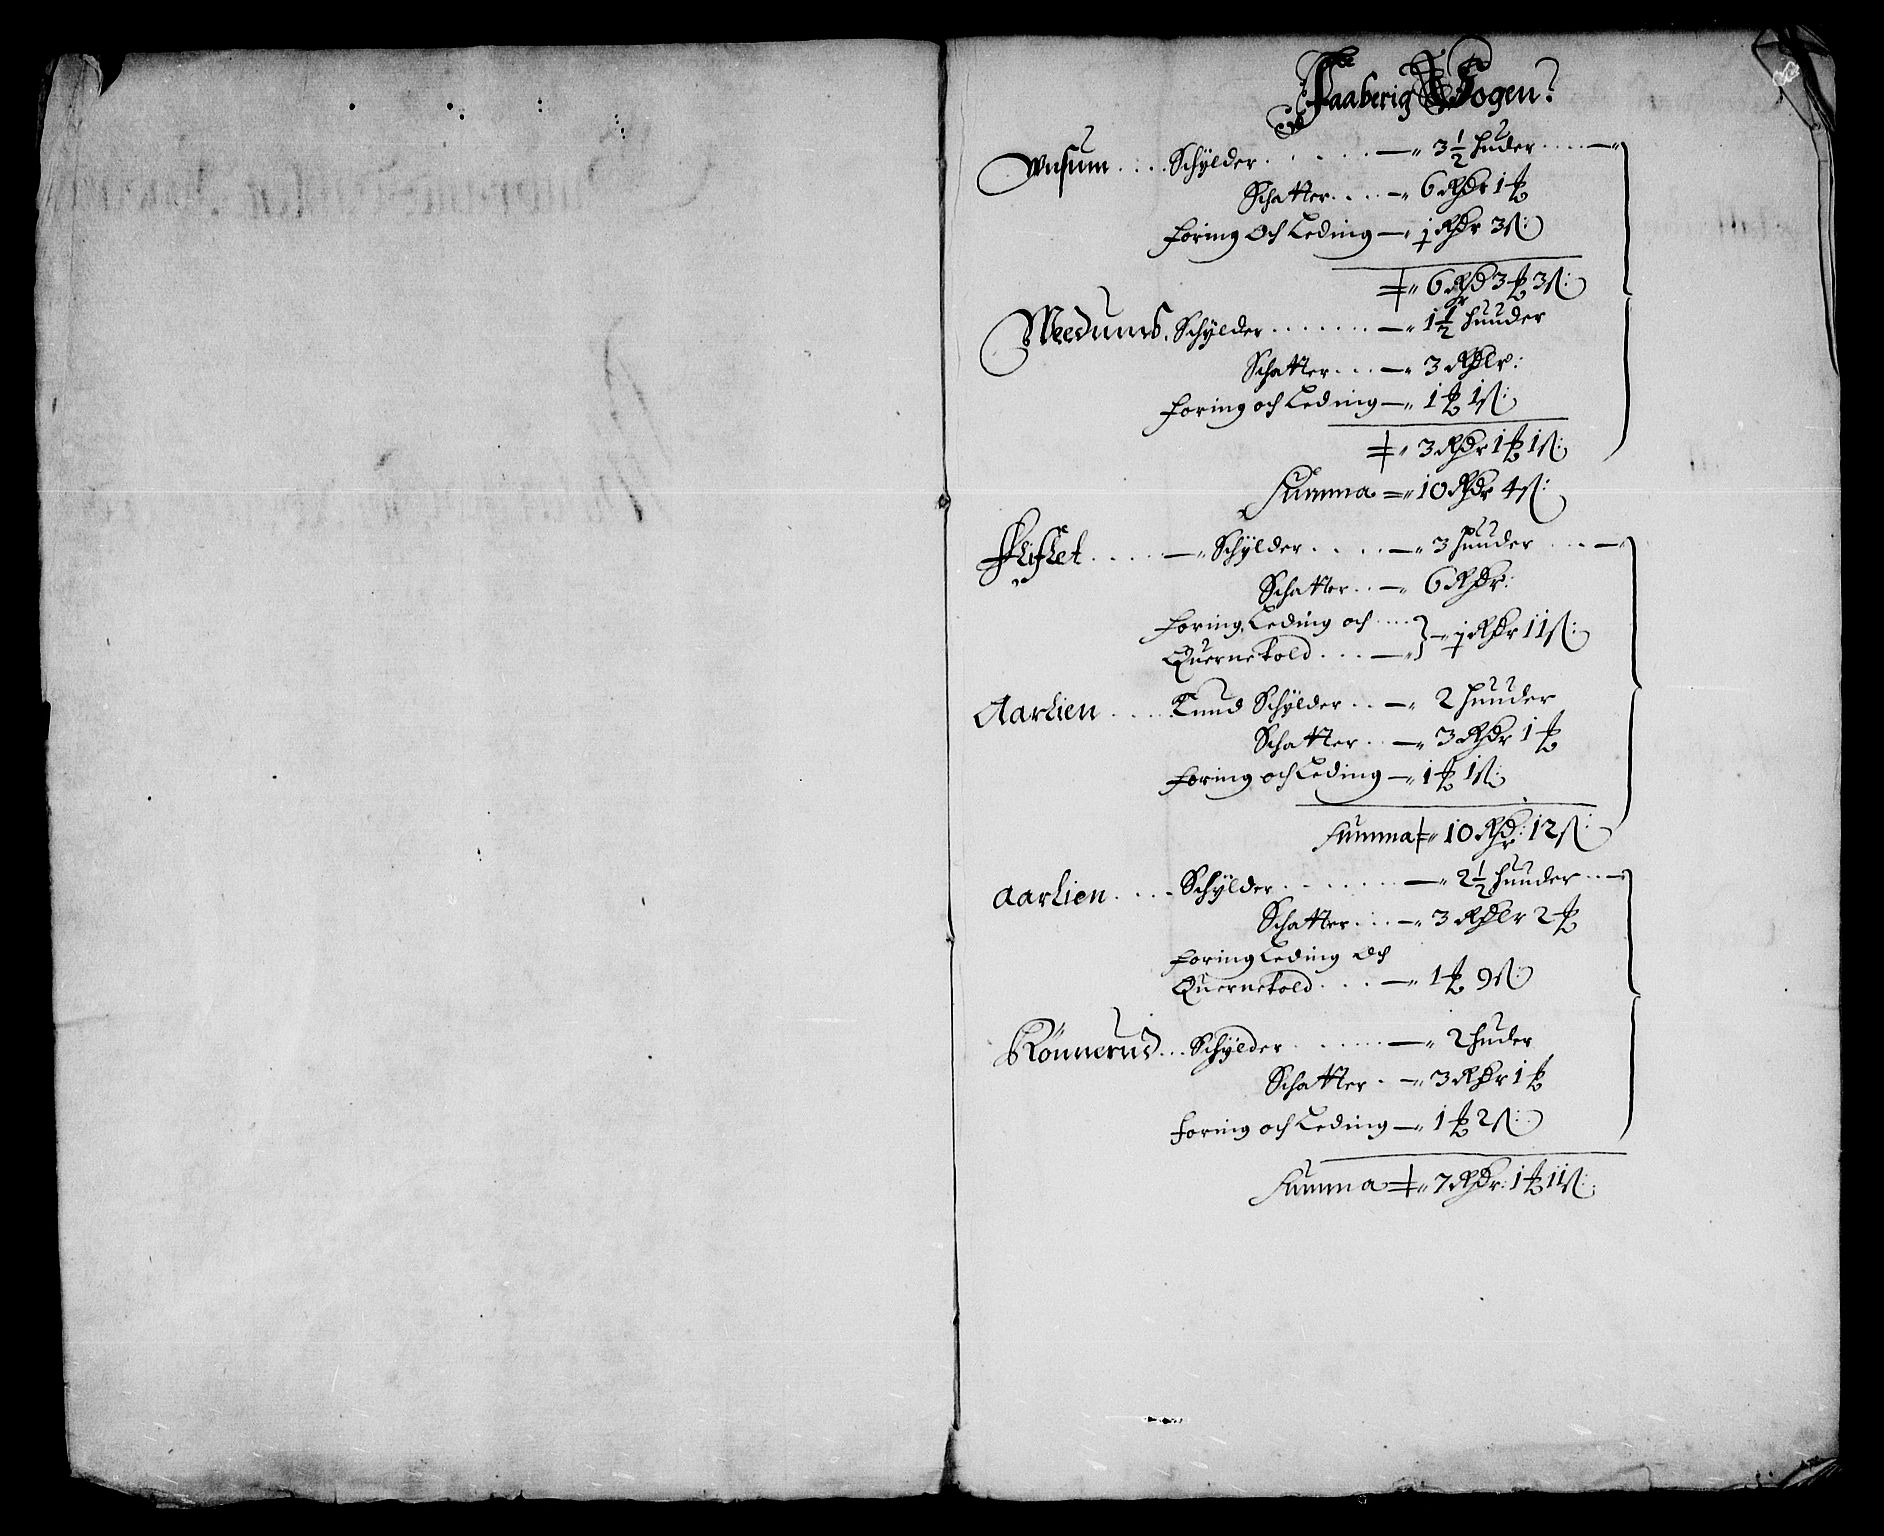 Faaberig Sogen:
Wusum .... Schÿlder ...... — 3 1/2 huder ....
Schatter .... — 6 Rhdr 1 ₰
Foring Och Leding — 1 Rhdr 3 ß:
6 Rhdr 3 ₰ 3 ß:
Meedums. Schÿlder ....... — 1 1/2 huuder
Schatter ... — 3 Rhdlr:
Foring och Leding — 1 ₰ 1 ß:
3 Rhdr 1 ₰ 1 ß:
Summa = 10 Rhdr 4 ß:
Flislet ..... — Schÿlder .... — 3 huuder ....
Schatter .. — 6 Rhdr:
Foring, Leding och ....
Quernetold ... — } — 1 Rhdr 11 ß:
Aarlien ..... Knud Schÿlder .. — 2 huuder
Schatter .. — 3 Rhdr 1 ₰
Foring och Leding — 1 ₰ 1 ß:
Summa = 10 Rhdr: 12 ß:
Aarlien .... Schÿlder ....... — 2 1/2 huuder ...
Schatter ... — 3 Rhdlr 2 ₰
Foring Leding Och
Quernetold .... — 1 ₰ 9 ß:
Rönnerud ... Schÿlder ...... — 2 huder
Schatter . — 3 Rhdr 1 ₰
Foring och Leding — 1 ₰ 2 ß:
Summa = 7 Rhdr: 1 ₰ 11 ß: